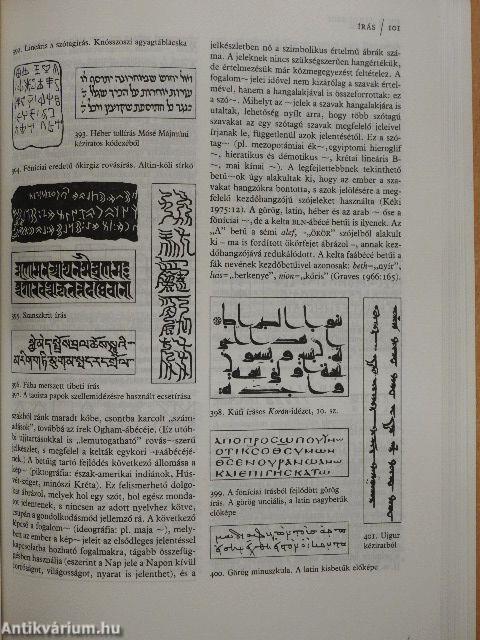 ÍRÁS / 101
392. Lineáris a szótagírás. Knósszoszi agyagtáblácska
393. Héber tollírás Mósé Májmúni
kéziratos kódexéből
394. Föníciai eredetű ókirgiz rovásírás. Altin-köli sírkő
395. Szanszkrit írás
396. Fába metszett tibeti írás
397. A taoista papok szellemidézésre használt ecsetírása
szakból ránk maradt kőbe, csontba karcolt „szám-
adások", továbbá az írek Ogham-ábécéje. (Ez utób-
bi ujjtartásokkal is „lemutogatható" rovás~szerű
jelkészlet, s megfelel a kelták egykori ~FAábécéjé-
nek.) A betűig tartó fejlődés következő állomása a
kép~ (piktográfia: észak-amerikai indiánok, Hús-
vét-sziget, minószi Kréta). Ez felismerhető dolgo-
kat ábrázol, melyek hol egy szót, hol egész monda-
tot jelentenek, s nincsen az adott nyelvhez kötve,
csupán a gondolkodásmód jellemző rá. A következő
lépcső a fogalom~ (ideográfia: pl. maja ~), mely-
ben az ember a kép~ jeleit az elsődleges jelentéssel
kapcsolatba hozható fogalmakra, tágabb összefüg-
gésben használja (eszerint a Nap jele a Napon kívül
forróságot, világosságot, nyarat is jelenthet), és a
jelkészletben nő a szimbolikus értelmű ábrák szá-
ma. A jeleknek nincs szükségszerűen hangértékük,
de értelmezésük már közmegegyezést feltételez. A
fogalom~ jelei idővel nem kizárólag a szavak értel-
mével, hanem a hangalakjával is összeforrottak: ez
a szó~. Mihelyt az ~jelek a szavak hangalakjára is
utaltak, lehetőség nyílt arra, hogy több szótagú
szavakat az egy szótagú szavak megfelelő jeleivel
írjanak le, függetlenül azok jelentésétől. Ez a szó-
tag~ (pl. mezopotámiai ék~, egyiptomi hieroglif
~, hieratikus és démotikus ~, krétai lineáris B-
~, mai kínai ~). A legfejlettebbnek tekinthető
betű~ok úgy alakultak ki, hogy az ember a sza-
vakat hangzókra bontotta, s azok jelölésére a meg-
felelő kezdőhangzójú szójeleket használta (Kéki
1975:12). A görög, latin, héber és az arab ~ őse a
föníciai ~, de a kelta BLN-ábécé betűi is ilyenek. Az
„A" betű a sémi alef, -„ÖKÖR" szójelből alakult
ki – ma is fordított ökörfejet ábrázol –, annak kez-
dőhangzójává redukálódott. A kelta faábécé betűi a
fák nevének kezdőbetűivel azonosak: beth=„nyír",
luis=„berkenye", nion=„kőris" (Graves 1966:165).
398. Kúfi írásos Korán-idézet, 10. sz.
ΑΠΟΠΡΟСΩΠΟΥΤΗ
399. A föníciai írásból fejlődött görög
írás. A görög unciális, a latin nagybetűk
előképe
400. Görög minuszkula. A latin kisbetűk előképe
401. Ujgur
kéziratból
Antikvárium.hu